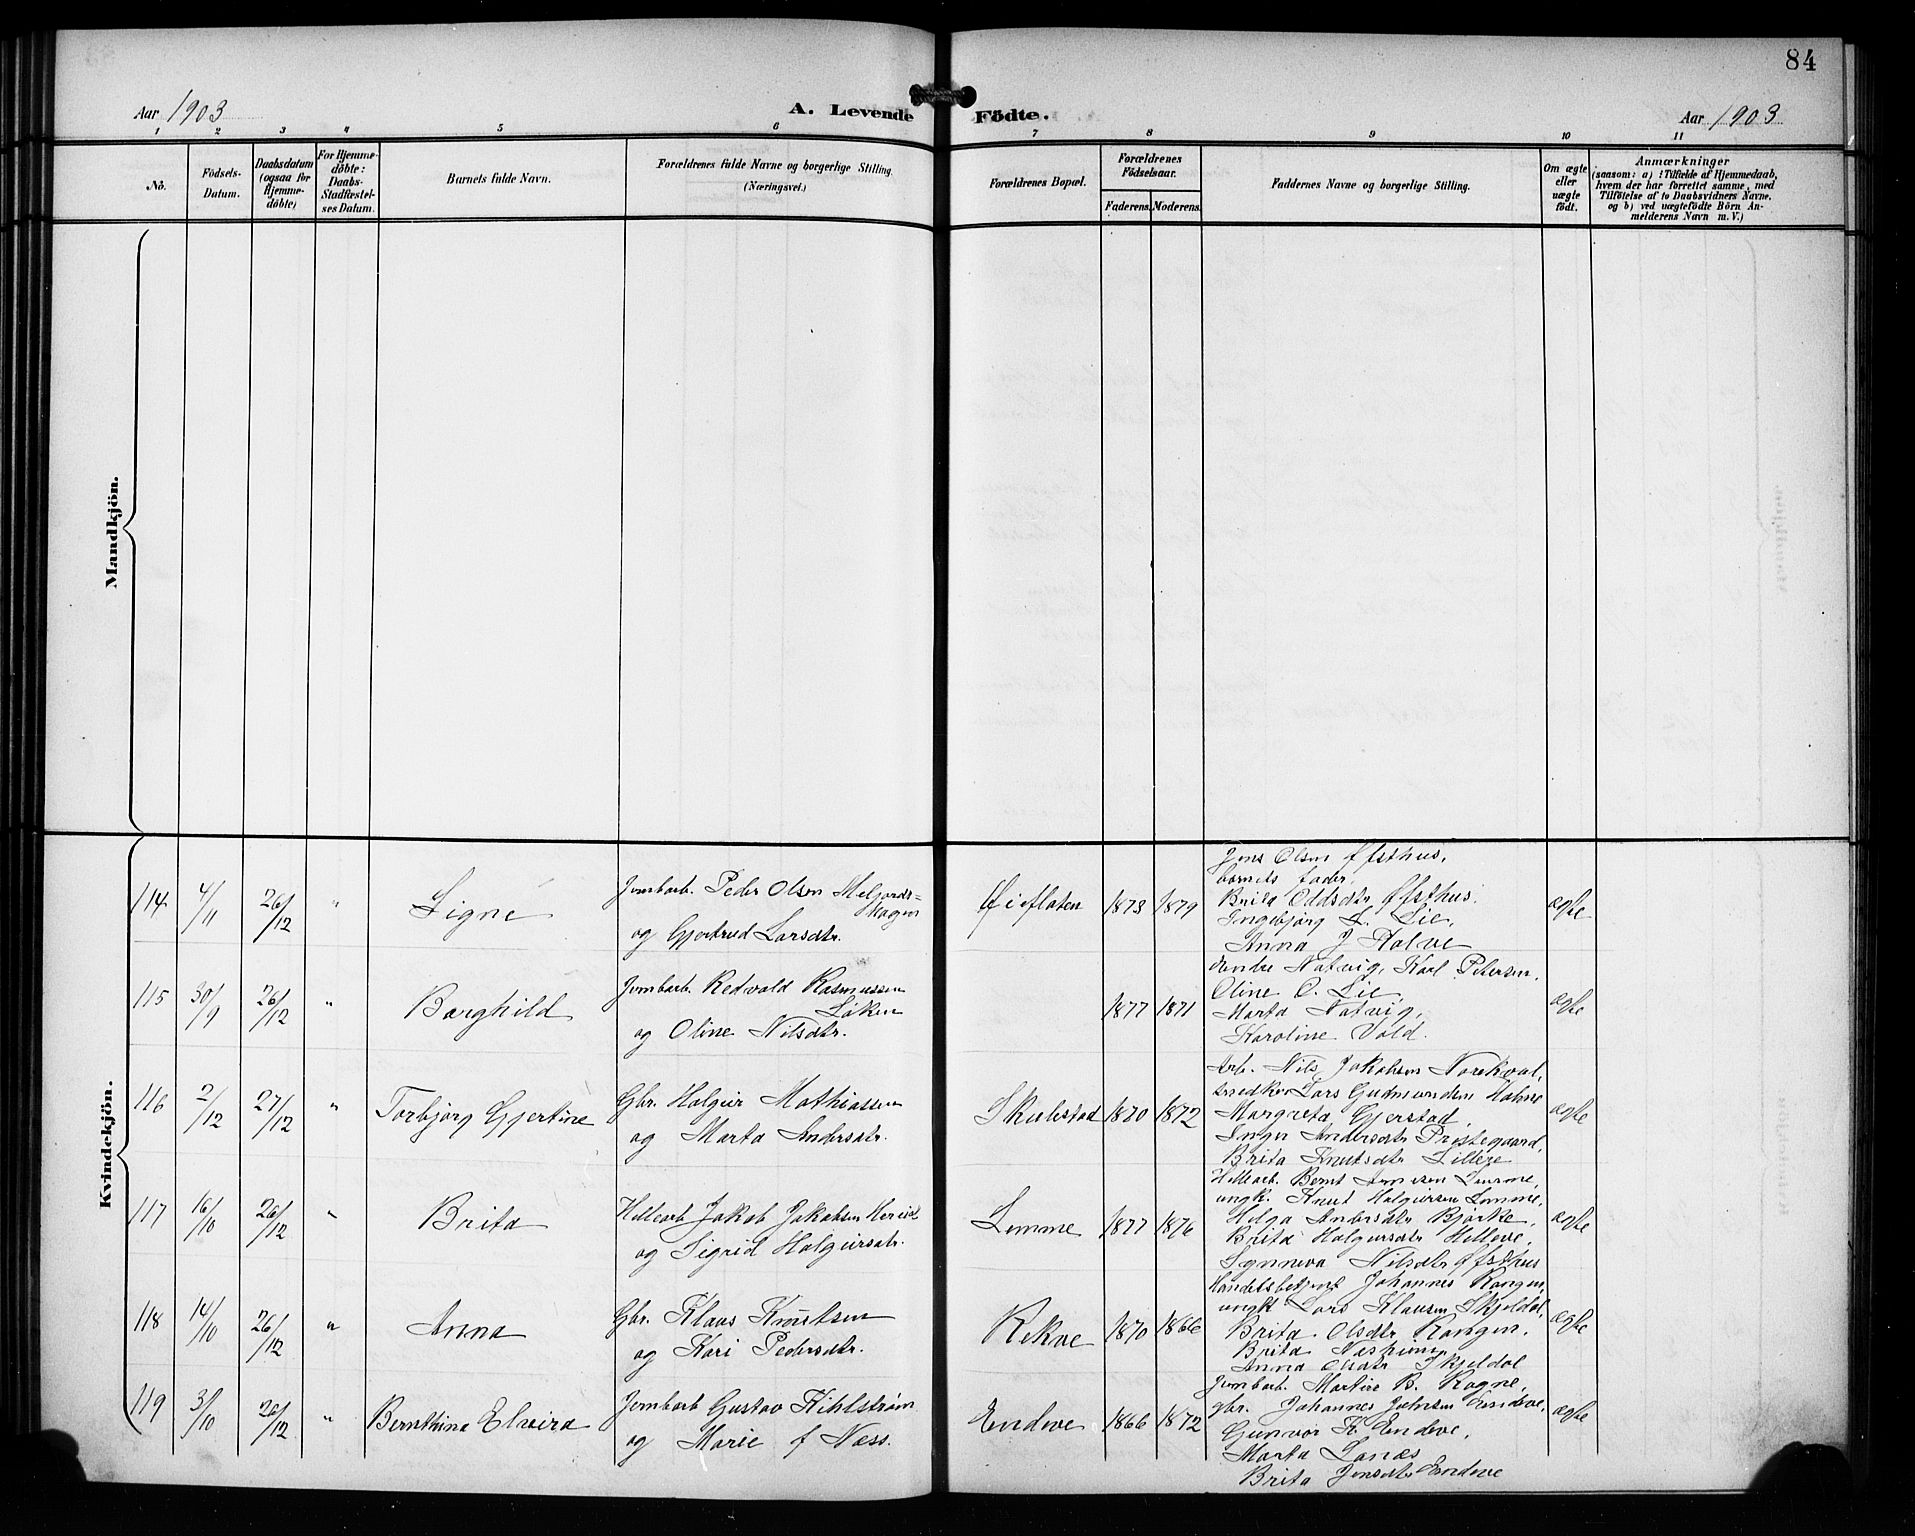 84
Aar 1903
A. Levende Födte.
Aar 1903
1 2 3 4 5 6 7 8 9 10 11
No.
Födsels-
Datum.
Daabsdatum
(ogsaa for
Hjemme-
döbte)
For Hjemme-
döbte:
Daabs-
Stadfæstel-
ses Datum.
Barnets fulde Navn.
Forældrenes fulde Navne og borgerlige Stilling.
(Næringsvei.)
Forældrenes Bopæl.
Forældrenes
Födselsaar.
Faderens. Moderens.
Faddernes Navne og borgerlige Stilling.
Om ægte
eller
uægte
födt.
Anmærkninger
(saasom: a) i Tilfælde af Hjemmedaab,
hvem der har forrettet samme, med
Tilföielse af to Daabsvidners Navne,
og b) ved uægtefödte Börn An-
melderens Navn m. V.)
Mandkjön.
Kvindekjön.
114 4/11 26/12 " Signe
Jernbarb. Peder Olsen
og Gjertrud Larsdtr.
1873 1879
Jens Olsen Øfsthus,
barnets fader.
Brita Oddsdtr Øfsthus.
Ingebjørg L. Lie,
Anna J
ægte
115 30/9 26/12 " Borghild
Jernbarb. Redvald Rasmussen
Løken
og Oline Nilsdtr.
1877 1871
Endre Natvig, Karl Petersen,
Oline O. Lie,
Marta Natvig,
Karoline Vold.
ægte
116 2/12 27/12 " Torbjørg Gjertine
Gbr. Holgeir Mathiassen
og Marta Andersdtr.
Skulestad 1870 1872
Arb. Nils Jakobsen
Lars Gudmundsen
Margreta Gjerstad,
Inger Andersdtr Prestegaard,
Brita Knutsdtr
ægte
117 16/10 26/12 " Brita
Hellearb Jakob Jakobsen Hereid
og Sigrid Holgeirsdtr.
Lemme 1877 1876
Hellearb. Bernt
ungk. Knut Holgeirsen Lemme,
Helga Andersdtr Bjørke,
Brita Holgeirsdtr Helleve,
Synneva Nilsdtr Øfsthus
ægte
118 14/10 26/12 " Anna
Gbr. Klaus Knutsen
og Kari Pedersdtr.
Rekve 1870 1866
Handelsbetjent Johannes Rongen,
ungk. Lars Klausen Skjeldal,
Brita Olsdtr Rongen,
Brita Næsheim
Anna Olsdtr Skjeldal
ægte
119 3/10 26/12 " Bernthina Elvira
Jernbarb Gustav Kihlstrøm
og Marie f Næss.
Endeve 1866 1872
Jernbarb. Martin B. Rogne,
gbr. Johannes Jensen Endeve,
Gunvor K. Endeve,
Marta Lanes
Brita Jensdtr Endeve
ægte